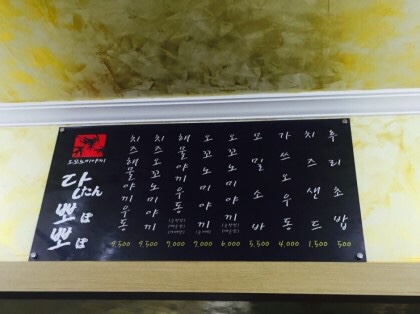 오꼬노미야끼
다
뽀
뽀
치즈해물야끼우동 9,500
치즈오꼬노미야끼 9,500
해물야끼우동 7,000
오꼬노미야끼 7,000
오꼬노미야끼 6,000
모밀소바 5,500
가쓰오우동 4,000
치즈샌드 1,500
후리초밥 500